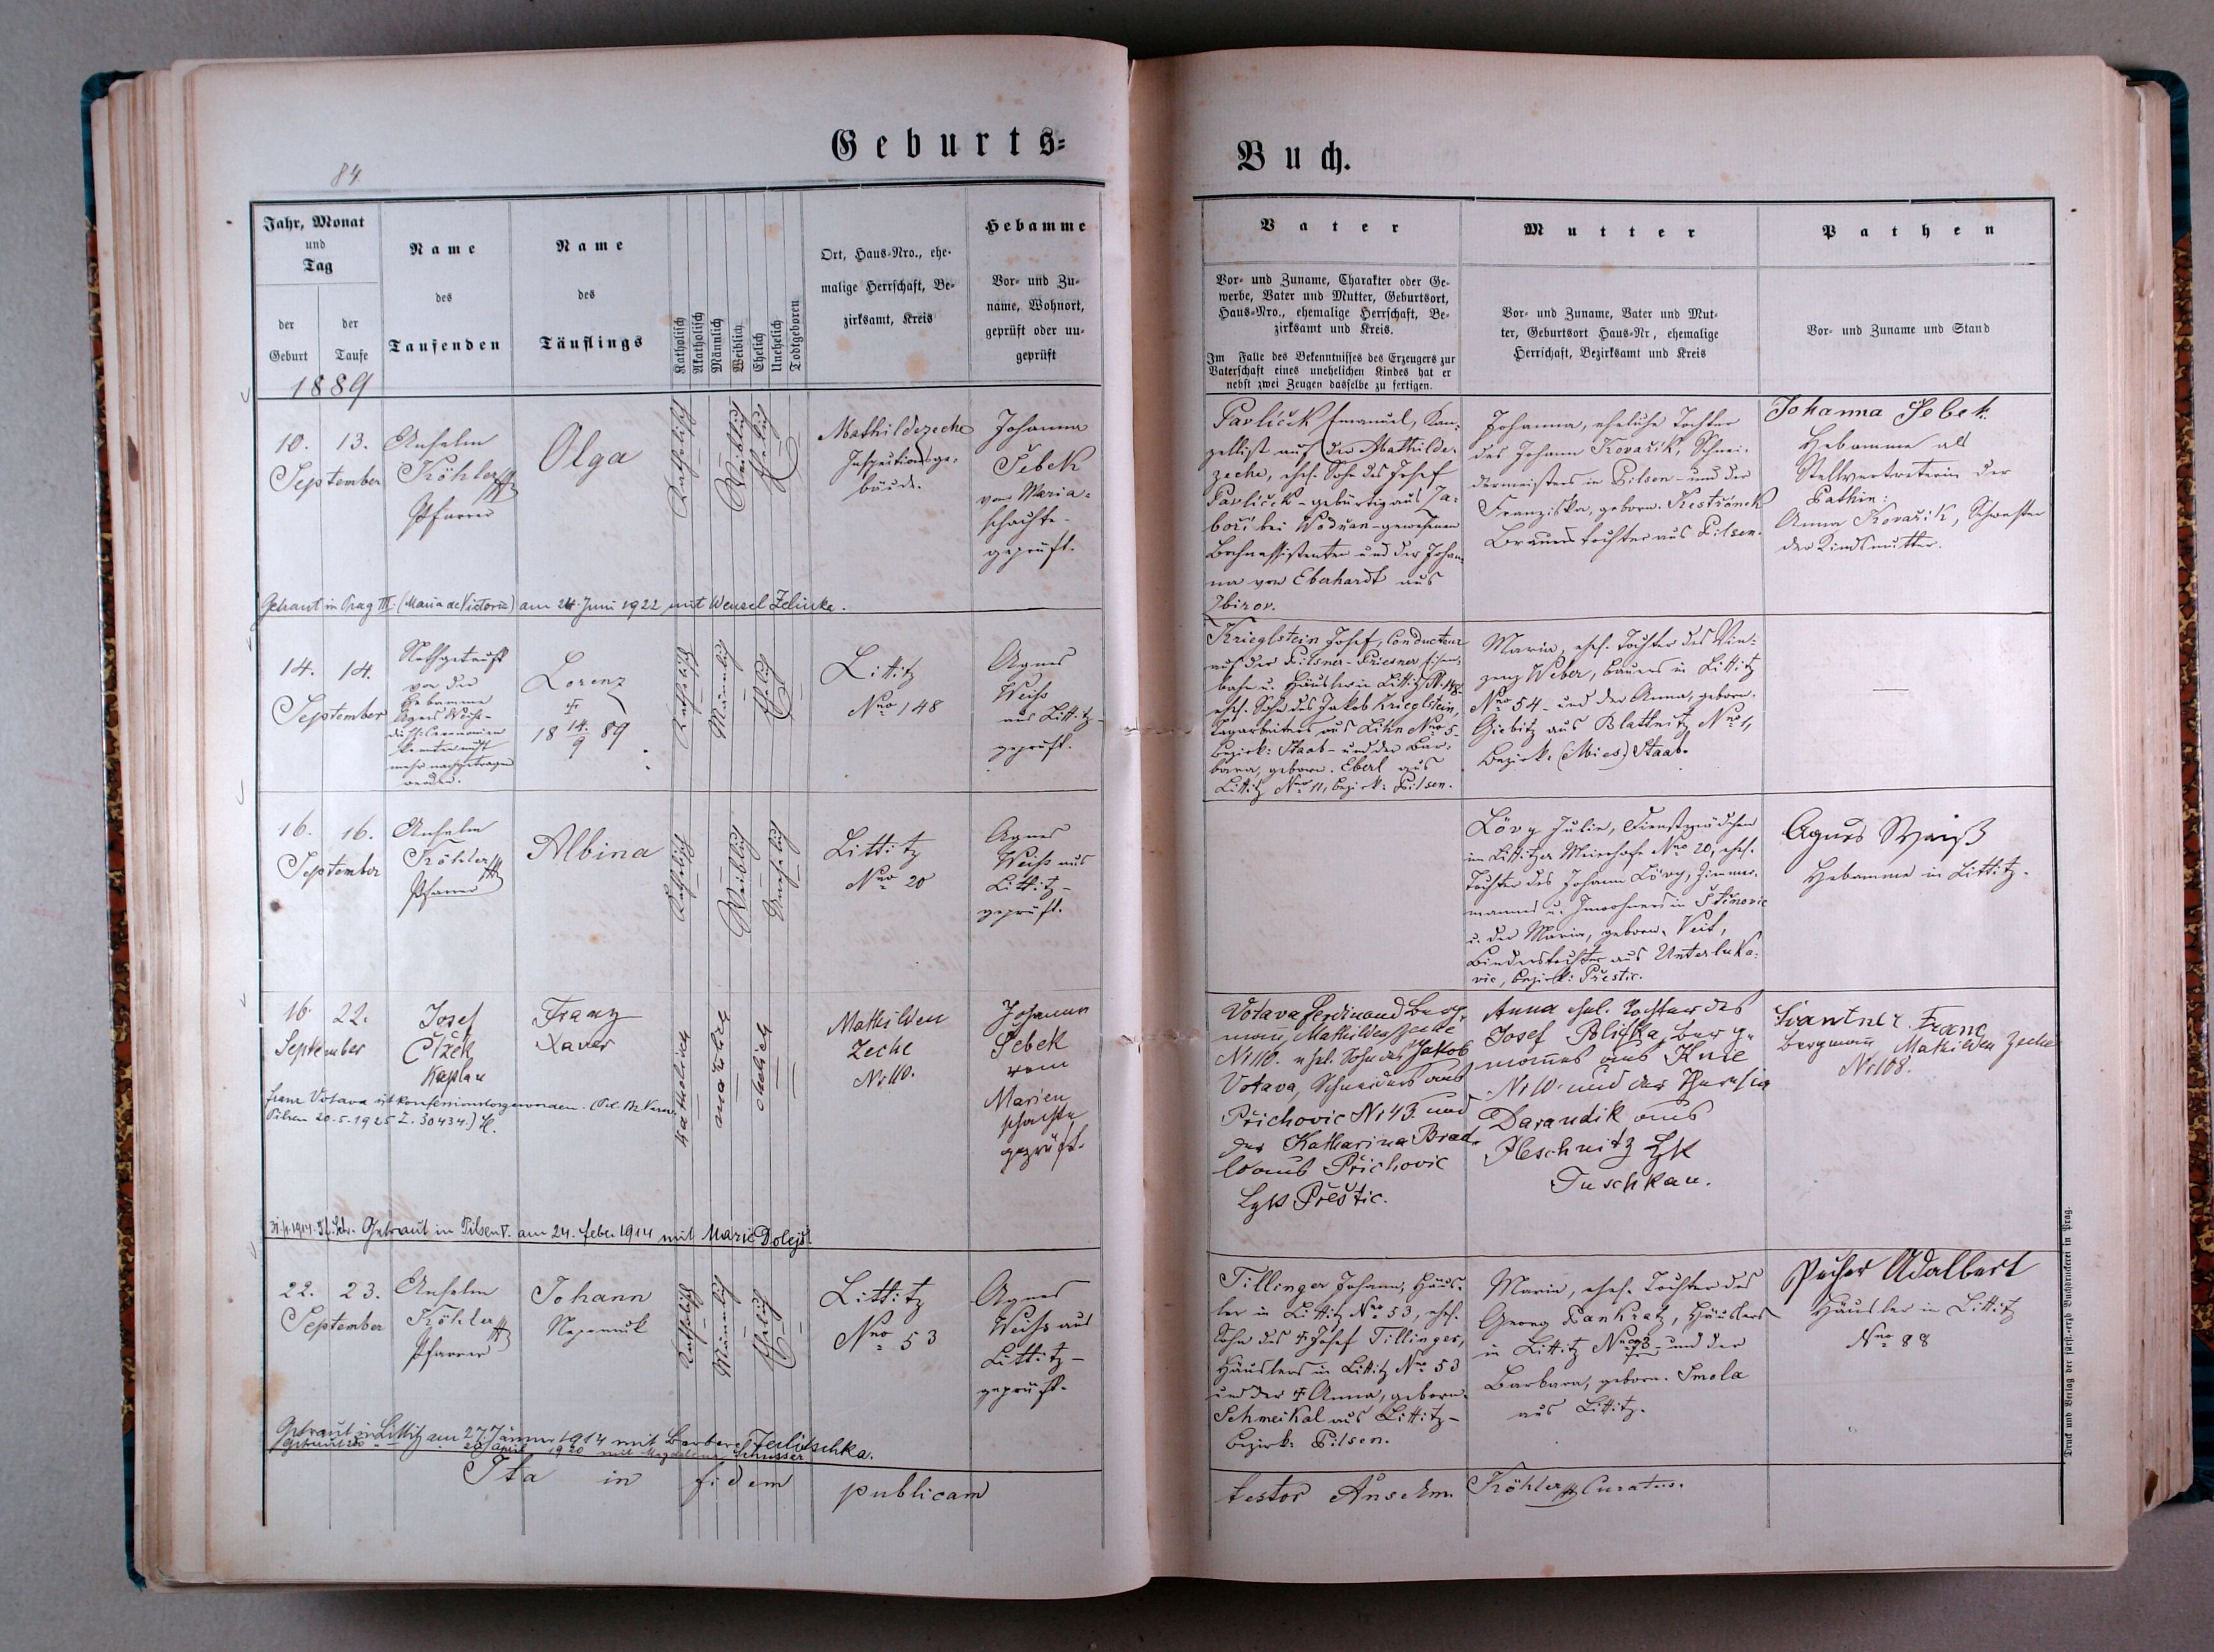 84
Geburts=
Buch.
Jahr, Monat
und
Tag
der
Geburt
der
Taufe
1889
Name
des
Taufenden
Name
des
Täuflings
Katholisch
Akatholisch
Männlich
Weiblich
Ehelich
Unehelich
Todtgeboren
Ort, Haus-Nro., ehe-
malige Herrschaft, Be-
zirksamt, Kreis
Hebamme
Vor- und Zu-
name, Wohnort,
geprüft oder un-
geprüft
Vater
Vor- und Zuname, Charakter oder Ge-
werbe, Vater und Mutter, Geburtsort,
Haus-Nro., ehemalige Herrschaft, Be-
zirksamt und Kreis.
Im Falle des Bekenntnisses des Erzeugers zur
Vaterschaft eines unehelichen Kindes hat er
nebst zwei Zeugen dasselbe zu fertigen.
Mutter
Vor- und Zuname, Vater und Mut-
ter, Geburtsort Haus-Nr, ehemalige
Herrschaft, Bezirksamt und Kreis
Pathen
Vor- und Zuname und Stand
10. 13.
September
Anselm
Köhler
Pfarrer
Olga
Katholisch
Weiblich
Ehelich
Mathildezeche
Inspections ge-
bäude.
Johanna
Šebek
vom Maria-
schachte-
geprüft.
Pavlíček Emanuel, Kan-
zellist auf der Mathilde-
zeche, ehel. Sohn des Josef
Pavlíček - gebürtig aus Za-
boří bei Wodnan - gewesenen
Bahnassistenten und der Johan-
na von Eberhardt aus
Zbirov.
Johanna, eheliche Tochter
des Johann Kovařík, Schnei-
dermeisters in Pilsen - und der
Franziska, geborn. Kestřánek
Brauerstochter aus Pilsen.
Johanna Šebek
Hebamme als
Stellvertreterin der
Pathin:
Anna Kovařík, Schwester
der Kindsmutter.
Getraut in Prag III. (Maria de Victoria) am 24. Juni 1922 mit Wenzel Zelinka.
14. 14.
September
Nothgetauft
von der
Hebamme
Agnes Weiss-
die hl. Ceremonien
konnten nicht
mehr nachgetragen
werden.
Lorenz
†
18 14./9 89
Katholisch
Männlich
Ehelich
Littitz
Nro 148
Agnes
Weiss
aus Littitz-
geprüft.
Krieglstein Josef, Conducteur
auf der Pilsner-Priesner Eisen-
bahn u. Häusler in Littitz N. 148-
ehel. Sohn des Jakob Krieglstein,
Tagarbeiters aus Lihn Nro 5-
Bezirk: Staab - und der Bar-
bara, geborn. Eberl aus
Littitz Nro 11, Bezirk: Pilsen.
Maria, ehel. Tochter des Vin-
zenz Weber, Bauers in Littitz
Nro 54 - und der Anna, geborn.
Giebitz aus Blattnitz Nro 1,
Bezirk: (Mies) Staab.
16. 16.
September
Anselm
Köhler
Pfarrer
Albina
Katholisch
Weiblich
Unehelich
Littitz
Nro 20
Agnes
Weiss aus
Littitz-
geprüft.
Lövy Julie, Dienstmädchen
im Littitzer Meierhofe Nro 20, ehel.
Tochter des Johann Lövy, Zimmer-
manns u. Inwohners in Stěnovic
u. der Maria, geborn. Veit,
Binderstochter aus Unterluka-
vic, Bezirk: Přestic.
Agnes Weiß
Hebamme in Littitz.
16. 22.
September
Josef
Čížek
Kaplan
Franz
Xaver
Katholisch
männlich
ehelich
Mathilden
Zeche
Nr 110.
Johanna
Šebek
vom
Marien
schachte,
geprüft.
Votava Ferdinand Berg-
mann, Mathilden Zeche
Nr 110. ehel. Sohn des Jakob
Votava, Schneiders aus
Přichovic Nr 43. und
der Katharina Brad-
l aus Přichovic
Přestic.
Anna ehel. Tochter des
Josef Bergmannes aus Knie
Nr 10. und der Theresia
Darandik aus
Pleschnitz
Tuschkau.
Švantner Franc
Bergmann Mathilden Zeche
Nr 108.
Franz Votava ist konfessionslos geworden. (Pol.
Pilsen 20.5.1925 Z. 30434.)
Getraut in Pilsen V. am 24. Feber 1914 mit Marie Dolejš.
22. 23.
September
Anselm
Köhler
Pfarrer
Johann
Nepomuk
Katholisch
Männlich
Ehelich
Littitz
Nro 53
Agnes
Weiss aus
Littitz-
geprüft.
Tillinger Johann, Häus-
ler in Littitz Nro 53, ehel.
Sohn des † Josef Tillinger,
Häuslers in Littitz Nro 53
und der † Anna, geborn.
Schmeikal aus Littitz-
Bezirk: Pilsen.
Maria, ehel. Tochter des
Georg Pankratz, Häuslers
in Littitz und der
Barbara, geborn. Smola
aus Littitz.
Pecher Adalbert
Häusler in Littitz
Nro 88
Getraut in Littitz am 27. Jänner 1914 mit Barbara
Getraut 20 April 1920 mit Magdalena Schusser
Ita in fidem publicam
testor Anselm Köhler Curatus.
Druck und Verlag der fürst.-erzb. Buchdruckerei in Prag.